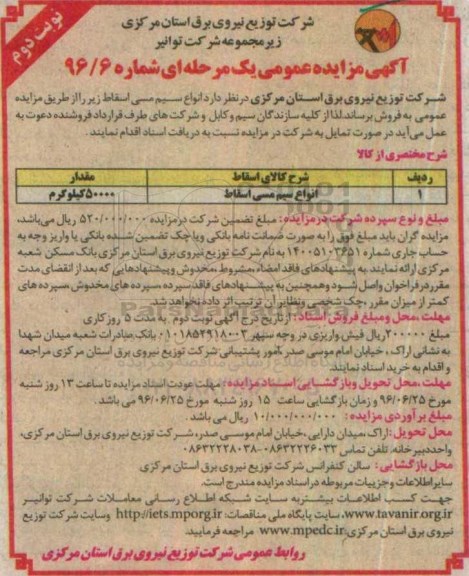 نوبت دوم
شرکت توزیع نیروی برق استان مرکزی
زیرمجموعه شرکت توانیر
آگهی مزایده عمومی یک مرحله ای شماره ۹۶/۶
شرکت توزیع نیروی برق استان مرکزی در نظر دارد انواع سیم مسی اسقاط زیر را از طریق مزایده
عمومی به فروش برساند. لذا از کلیه سازندگان سیم و کابل و شرکت های طرف قرارداد فروشنده دعوت به
عمل می آید در صورت تمایل به شرکت در مزایده نسبت به دریافت اسناد اقدام نمایند.
شرح مختصری از کالا
ردیف شرح کالای اسقاط مقدار
۱ انواع سیم مسی اسقاط ۵۰۰۰۰ کیلوگرم
مبلغ و نوع سپرده شرکت در مزایده: مبلغ تضمین شرکت در مزایده ۵۲۰/۰۰۰/۰۰۰ ریال می باشد،
مزایده گران باید مبلغ فوق را به صورت ضمانت نامه بانکی و یا چک تضمین شده بانکی یا واریز وجه به
حساب جاری شماره ۱۴۰۰۵۱۰۳۶۵۱ به نام شرکت توزیع نیروی برق استان مرکزی بانک مسکن شعبه
مرکزی ارائه نمایند. به پیشنهادهای فاقد امضاء، مشروط، مخدوش و پیشنهادهایی که بعد از انقضای مدت
مقرر در فراخوان واصل شود و همچنین به پیشنهادهای فاقد سپرده، سپرده های مخدوش، سپرده های
کمتر از میزان مقرر، چک شخصی و نظایر آن ترتیب اثر داده نخواهد شد.
مهلت، محل و مبلغ فروش اسناد: از تاریخ درج آگهی نوبت دوم به مدت ۵ روز کاری
مبلغ ۲۰۰۰۰۰ ریال فیش واریزی در وجه سپهر ۰۱۰۱۸۵۲۹۱۸۰۰۳ بانک صادرات شعبه میدان شهدا
به نشانی اراک، خیابان امام موسی صدر، امور پشتیبانی شرکت توزیع نیروی برق استان مرکزی مراجعه
و اقدام به خرید اسناد نمایند.
مهلت، محل تحویل و بازگشایی اسناد مزایده: مهلت عودت اسناد مزایده تا ساعت ۱۳ روز شنبه
مورخ ۹۶/۰۶/۲۵ و زمان بازگشایی ساعت ۱۵ روز شنبه مورخ ۹۶/۰۶/۲۵ می باشد.
مبلغ برآوردی مزایده: ۱۰/۰۰۰/۰۰۰/۰۰۰ ریال می باشد.
محل تحویل: اراک، میدان دارایی، خیابان امام موسی صدر، شرکت توزیع نیروی برق استان مرکزی،
واحد دبیرخانه. تلفن تماس ۰۸۶۳۲۲۲۶۰۳۳-۰۸۶۳۲۲۲۸۰۳۸
محل بازگشایی: سالن کنفرانس شرکت توزیع نیروی برق استان مرکزی
سایر اطلاعات و جزییات مربوطه در اسناد مزایده مندرج است.
جهت کسب اطلاعات بیشتر به سایت شبکه اطلاع رسانی معاملات شرکت توانیر
www.tavanir.org.ir، سایت پایگاه ملی مناقصات: http://iets.mporg.ir و سایت شرکت توزیع
نیروی برق استان مرکزی: www.mpedc.ir مراجعه فرمایید.
روابط عمومی شرکت توزیع نیروی برق استان مرکزی